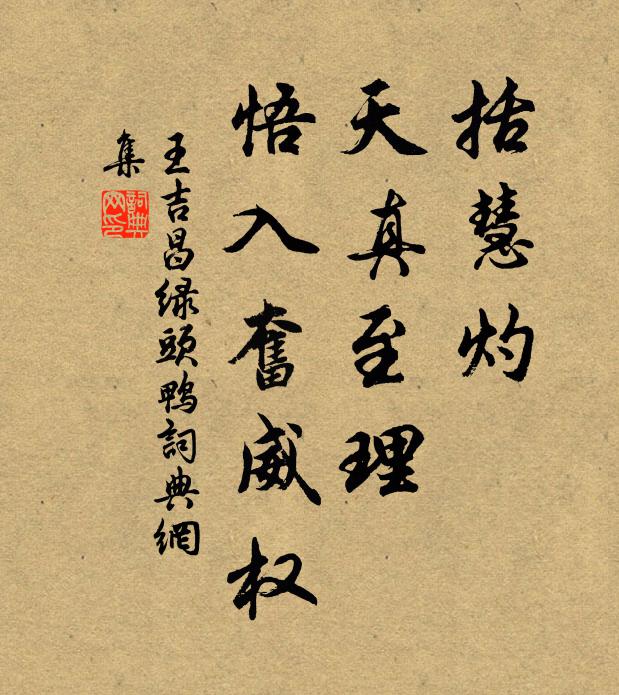 括慧灼
天真至理
悟入奮威权
王吉昌绿頭鴨詞典網
集
詞典网印